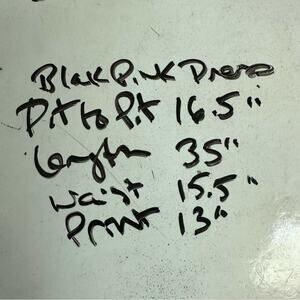 Blak Pink Dress
Pit to Pit 16.5"
Length 35"
Waist 15.5"
Print 13"